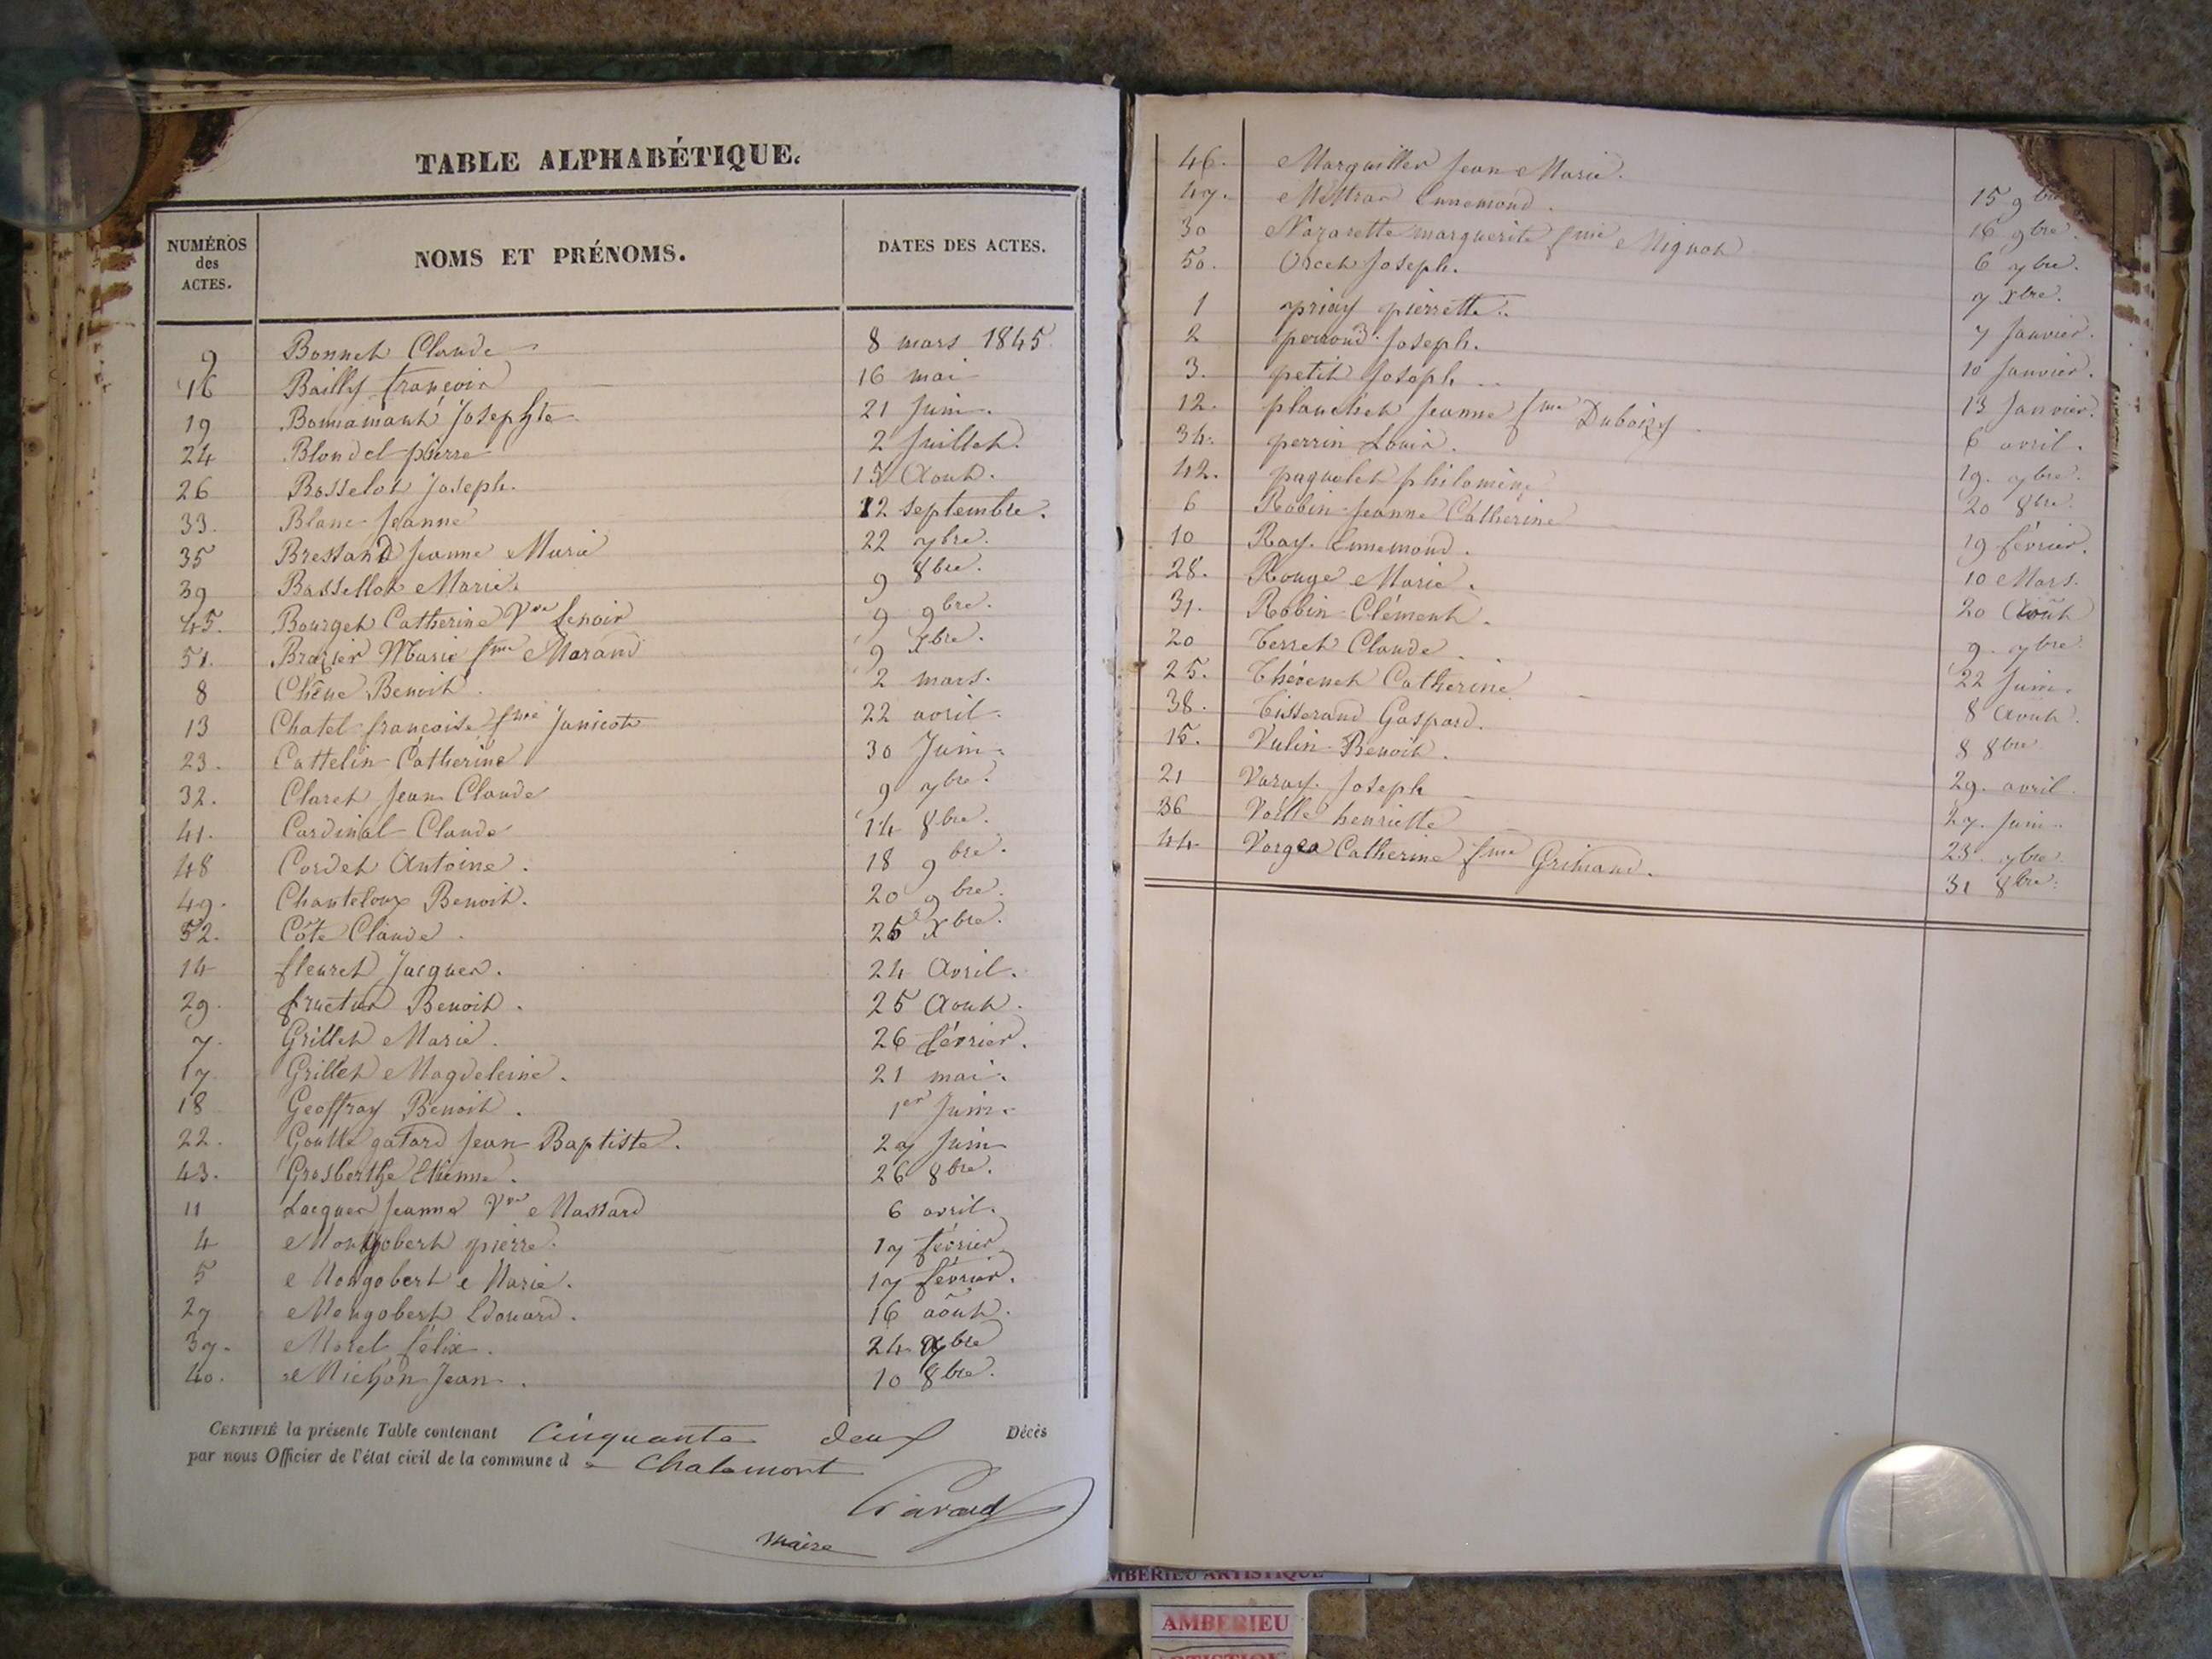 TABLE ALPHABÉTIQUE.
NUMÉROS des ACTES. NOMS ET PRÉNOMS. DATES DES ACTES.
9 Bonnet Claude 8 mars 1845
16 Bailly françois 16 mai
19 Bonnamant Josephte 21 Juin.
24 Blondel pierre 2 Juillet.
26 Bosselot Joseph. 15 Aout.
33. Blanc Jeanne 12 septembre.
35 Bressand Jeanne Marie 22 7bre.
39 Bassellot Marie. 9 8bre.
45. Bourget Catherine Vve Lenoir 9 9bre.
51. Brazier Marie fme Marand 9 Xbre.
8 Chêne Benoit. 2 mars.
13 Chatel françoise fme Janicot 22 avril.
23. Cattelin Catherine 30 Juin.
32. Claret Jean Claude 9 7bre.
41. Cardinal Claude 14 8bre.
48 Cordet Antoine. 18 9bre.
49. Chanteloux Benoit. 20 9bre.
52. Côte Claude. 26 Xbre.
14 fleuret Jacques. 24 Avril.
29. fructus Benoit. 25 Aout.
7. Grillet Marie. 26 février.
17 Grillet Magdeleine. 21 mai.
18 Geoffray Benoit. 1er Juin.
22. Goutte gatard Jean Baptiste. 27 Juin
43. Grosberthe Etienne. 26 8bre.
11 Lacques Jeanne Vve Massard 6 avril.
4 Mongobert pierre. 17 février
5 Mongobert Marie. 17 février.
27 Mongobert Edouard. 16 août.
37. Morel félix. 24 7bre
40. Michon Jean. 10 8bre.
CERTIFIÉ la présente Table contenant Cinquante deux Décès
par nous Officier de l'état civil de la commune d e Chalamont
maire
46. Marguiller Jean Marie. 15 9bre
47. Mettras Ennemond. 16 9bre.
30 Nazarette marguerite fme Mignot 6 7bre.
50. Orcet Joseph. 7 Xbre.
1 priay pierrette. 7 Janvier.
2 perroud Joseph. 10 Janvier.
3. petit Joseph 13 Janvier.
12. planchet Jeanne fme Duboisy 6 avril.
34. perrin Louis. 19. 7bre.
42. paquelet philomène 20 8bre.
6 Robin Jeanne Catherine 19 février.
10 Ray Ennemond. 10 Mars.
28. Rouge Marie. 20 Août
31. Robin Clément. 9. 7bre.
20 Terret Claude. 22 Juin.
25. Thévenet Catherine 8 Août.
38. Tisserand Gaspard. 8 8bre
15. Vulin Benoit. 29. avril.
21 Varay Joseph 27. Juin.
36 Voëlle henriette 23. 7bre.
44 Vorges Catherine fme Grimand. 31 8bre.
AMBERIEU ARTISTIQUE
AMBERIEU